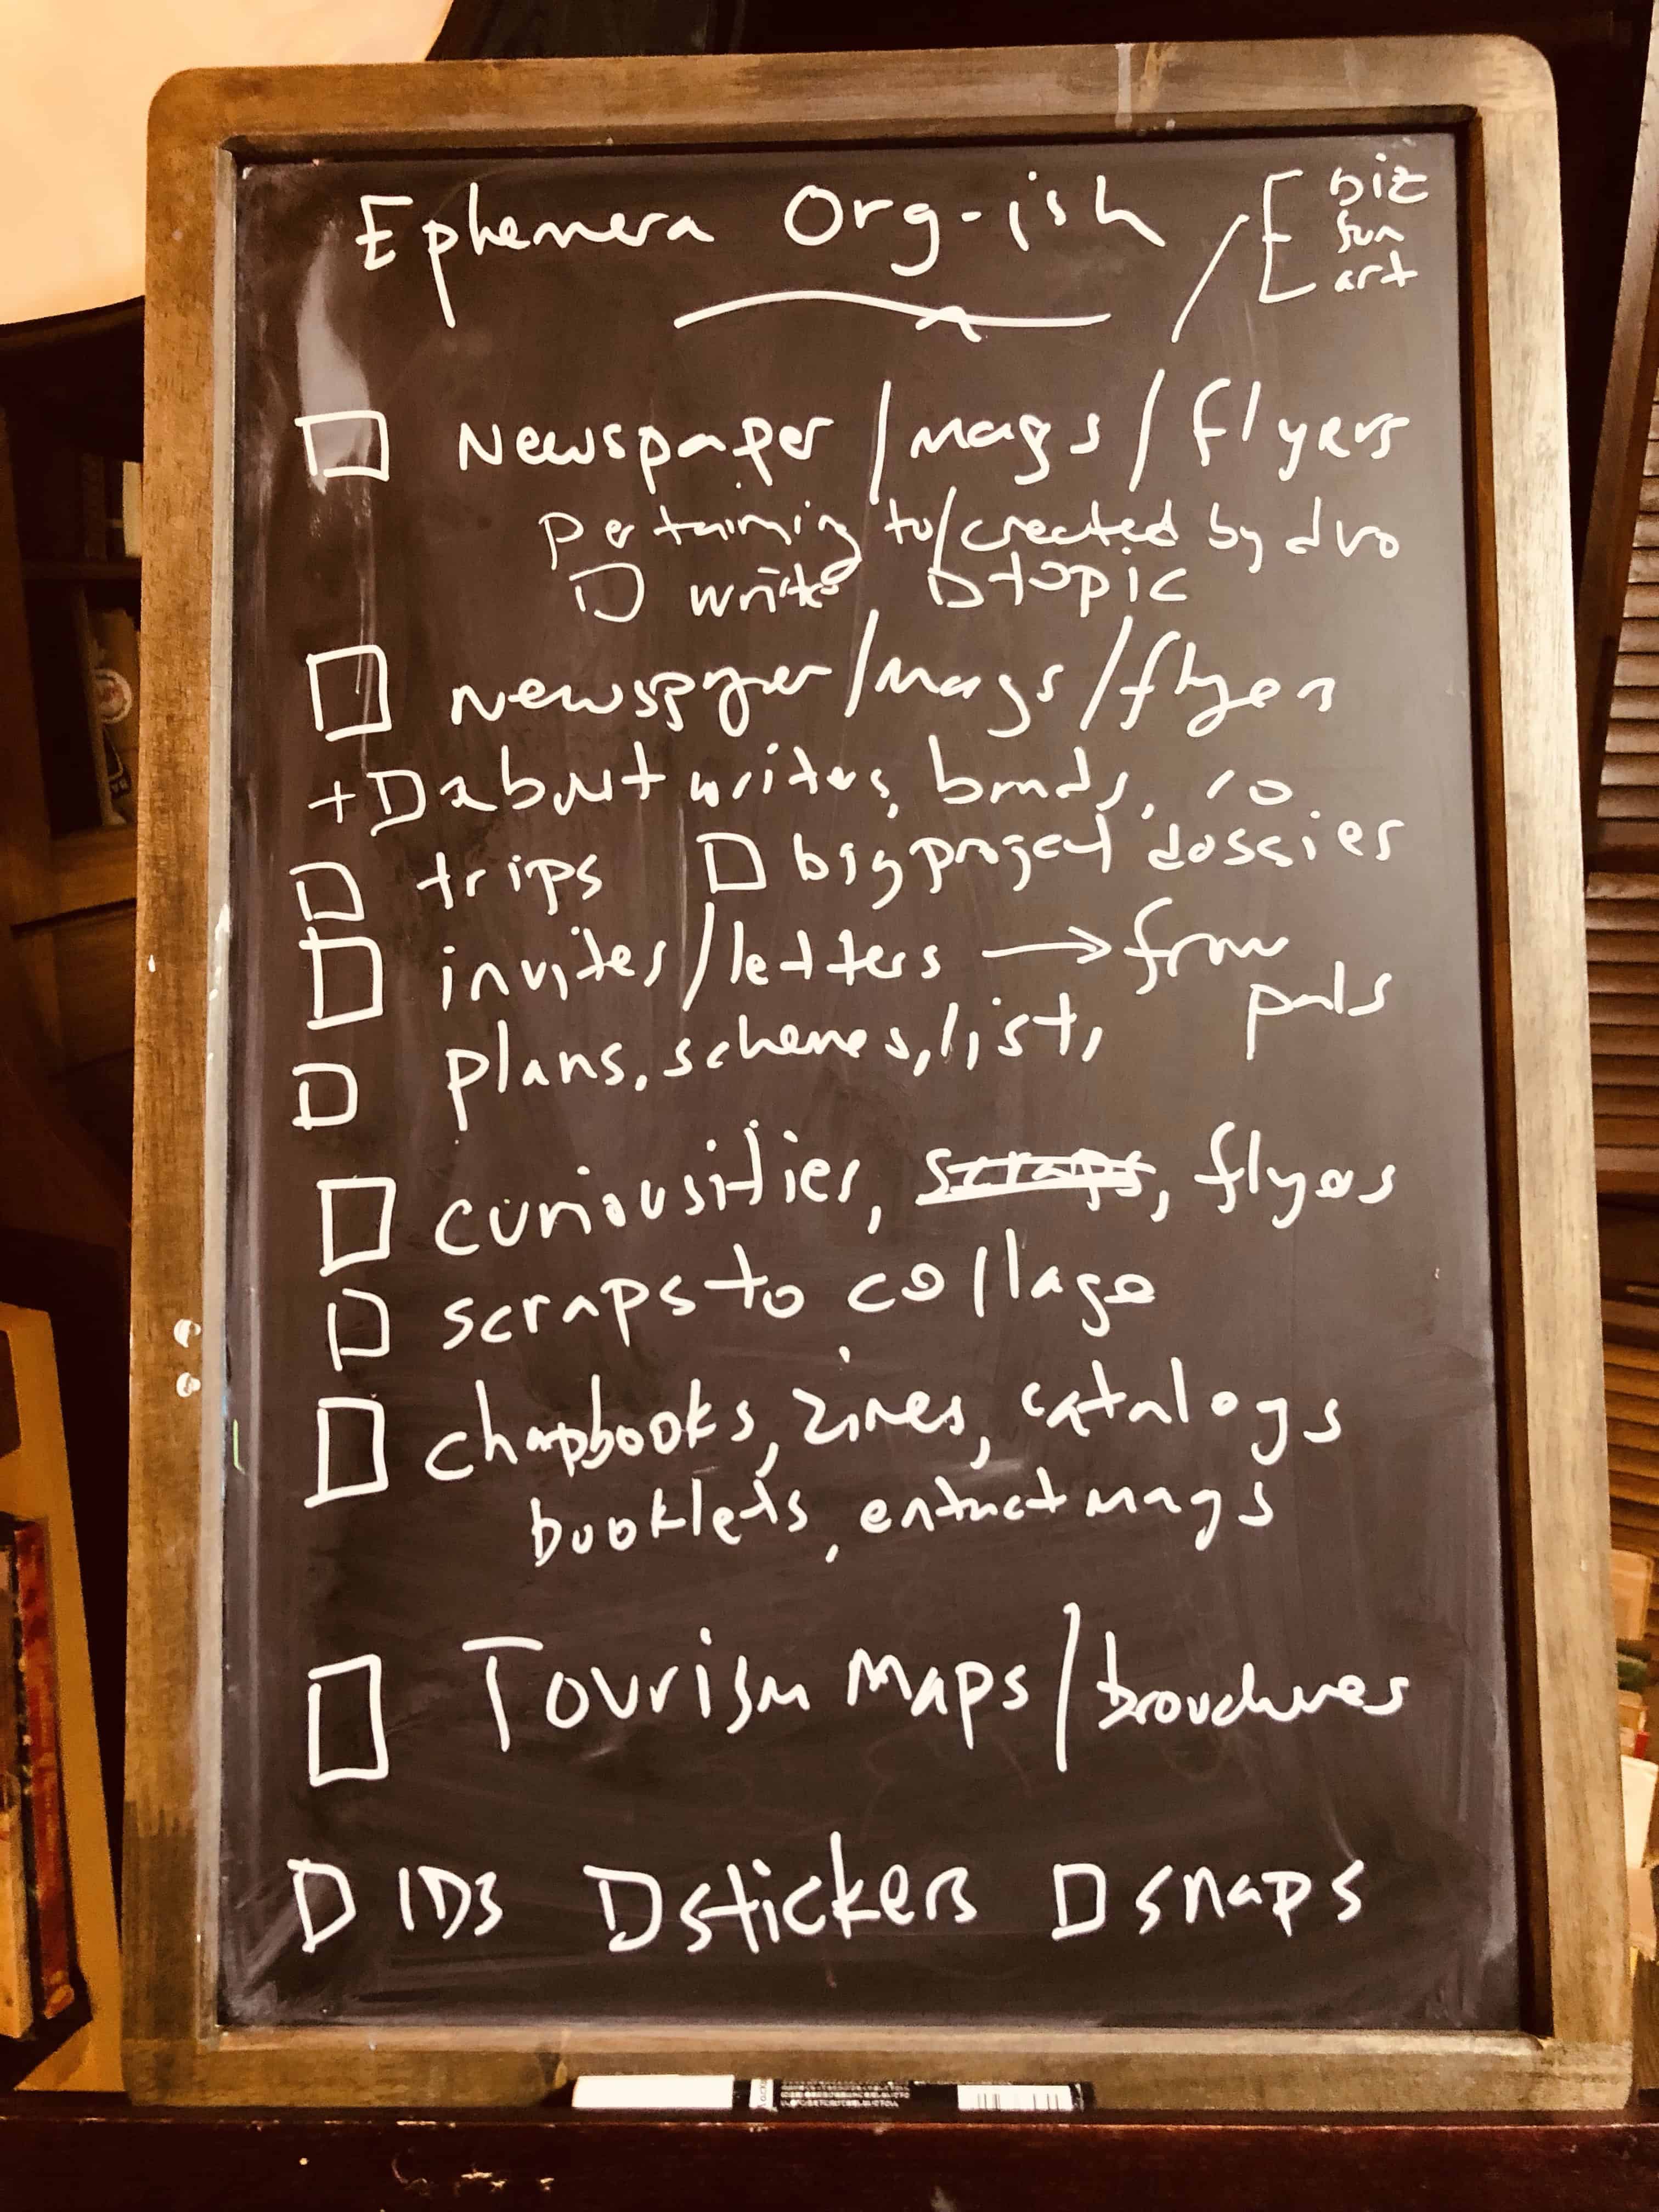 Ephemera Org-ish
biz
fun
art
Newspaper / mags / flyers
pertaining to/created by dvo
write, topic
Newspaper / mags / flyers
+ about writers, bands, co.
trips big project dossier
invites / letters → from pals
plans, schemes, lists
curiousities, scraps, flyers
scraps to collage
chapbooks, zines, catalogs
booklets, mags
Tourism Maps / brouchures
IDs stickers snaps